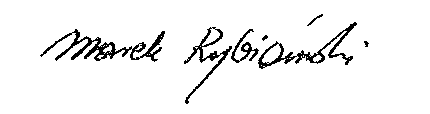 Marek Rybiński